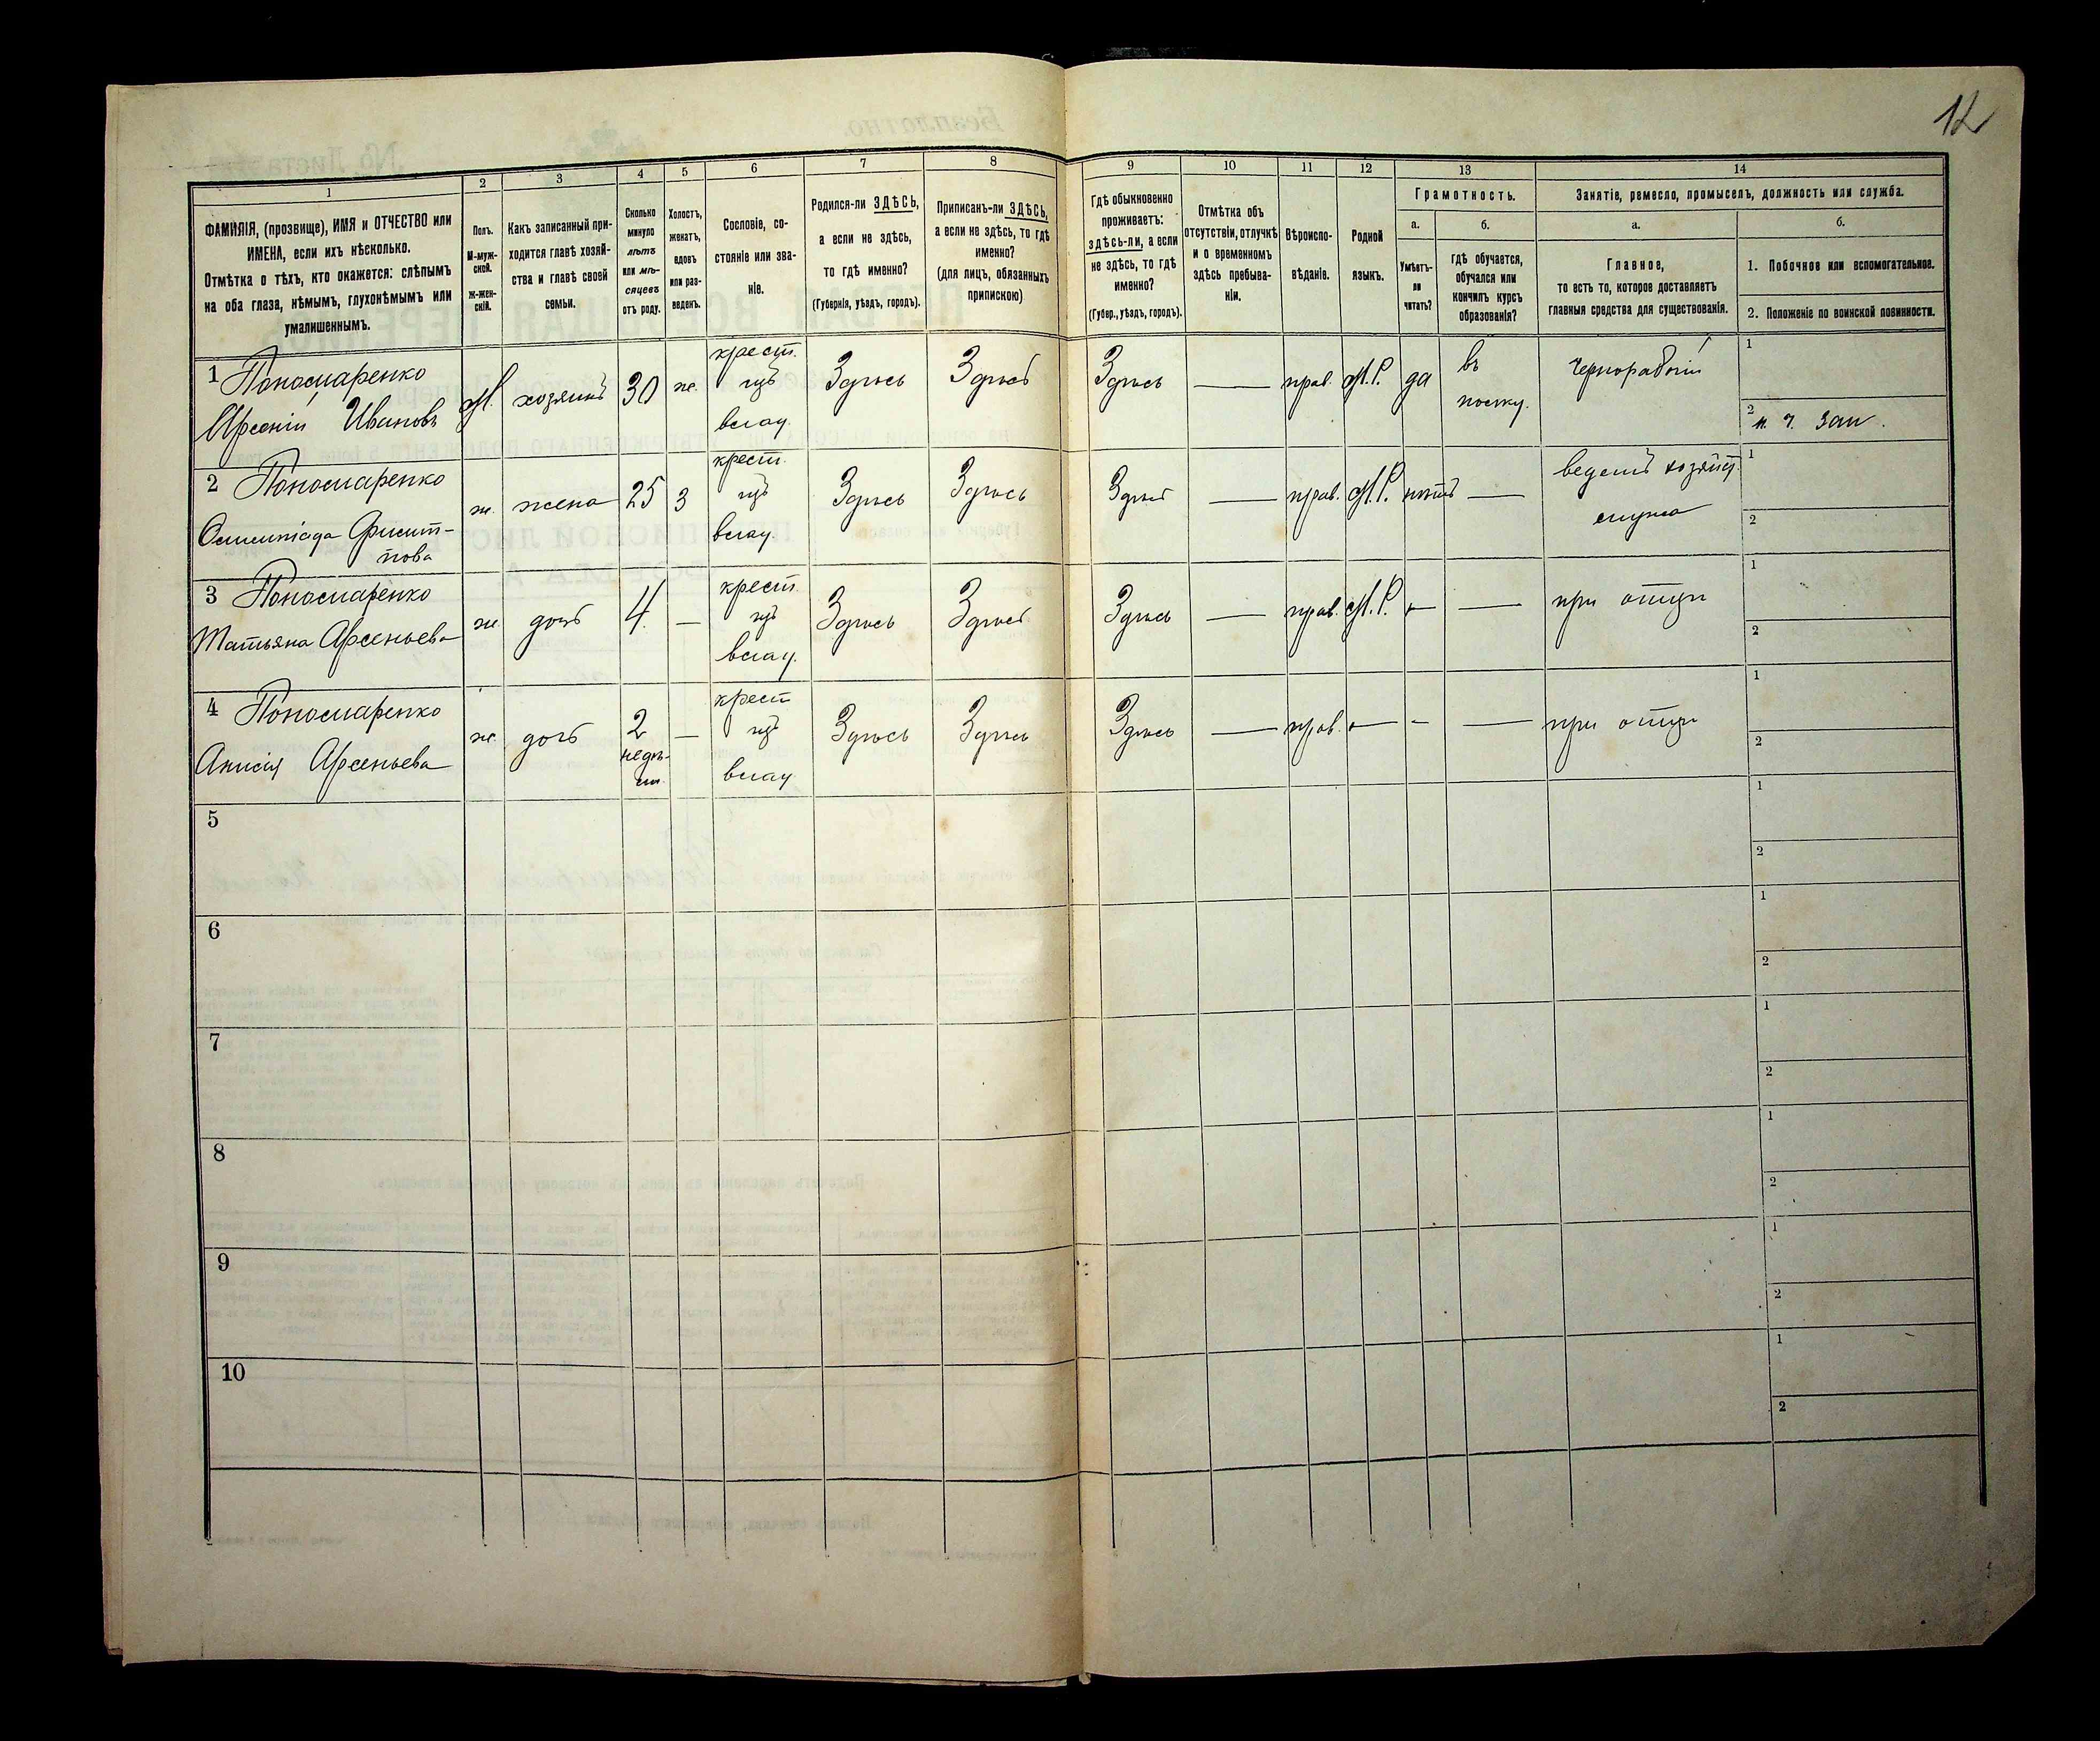 12
1
2
3
4
5
6
7
8
9
10
11
12
13
14
ФАМИЛІЯ, (прозвище), ИМЯ и ОТЧЕСТВО или
ИМЕНА, если ихъ нѣсколько.
Отмѣтка о тѣхъ, кто окажется: слѣпымъ
на оба глаза, нѣмымъ, глухонѣмымъ или
умалишеннымъ.
Полъ.
М-муж-
ской.
Ж-жен-
скій.
Какъ записанный при-
ходится главѣ хозяй-
ства и главѣ своей
семьи.
Сколько
минуло
лѣтъ
или мѣ-
сяцевъ
отъ роду.
Холостъ,
женатъ,
вдовъ
или раз-
веденъ.
Сословіе, со-
стояніе или зва-
ніе.
Родился-ли ЗДѢСЬ,
а если не здѣсь,
то гдѣ именно?
(Губернія, уѣздъ, городъ).
Приписанъ-ли ЗДѢСЬ,
а если не здѣсь, то гдѣ
именно?
(для лицъ, обязанныхъ
припискою)
Гдѣ обыкновенно
проживаетъ:
здѣсь-ли, а если
не здѣсь, то гдѣ
именно?
(Губер., уѣздъ, городъ).
Отмѣтка объ
отсутствіи, отлучкѣ
и о временномъ
здѣсь пребыва-
ніи.
Вѣроиспо-
вѣданіе.
Родной
языкъ.
Грамотность.
а.
Умѣетъ-
ли
читать?
б.
гдѣ обучается,
обучался или
кончилъ курсъ
образованія?
Занятіе, ремесло, промыселъ, должность или служба.
а.
Главное,
то есть то, которое доставляетъ
главныя средства для существованія.
б.
1. Побочное или вспомогательное.
2. Положеніе по воинской повинности.
1 Пономаренко
Арсеній Ивановъ
М.
хозяинъ
30
ж.
крест.
изъ
влад.
Здѣсь
Здѣсь
Здѣсь
прав.
М.Р.
да
въ
полку.
Чернорабочій
1
2
2 Пономаренко
ж.
жена
25
З
крест.
изъ
Здѣсь
Здѣсь
Здѣсь
прав.
М.Р.
нѣтъ
ведетъ хозяйст.
мужа
1
2
3 Пономаренко
Татьяна Арсеньева
ж
дочь
4.
крест.
изъ
влад.
Здѣсь
Здѣсь
Здѣсь
прав.
М.Р.
при отцѣ
1
2
4 Пономаренко
Анисія Арсеньева
ж.
дочь
2
недѣ-
ли.
крест
изъ
влад
Здѣсь
Здѣсь
Здѣсь
прав.
при отцѣ
1
2
5
1
2
6
1
2
7
1
2
8
1
2
9
1
2
10
1
2